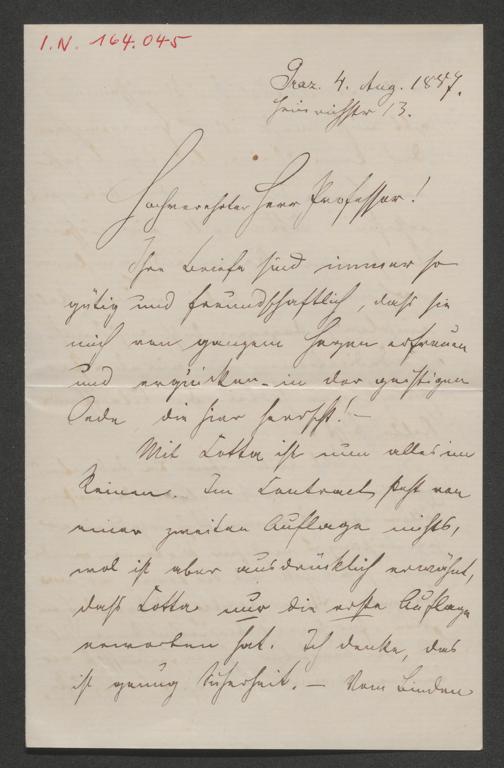 I.N. 164.045
Graz. 4. Aug. 1887.
Heinrichstr 13.
Hochverehrter Herr Professor!
Ihre Briefe sind immer so
gütig und freundschaftlich, daß sie
mich von ganzem Herzen erfreuen
und erquicken in der geistigen
Oede, die hier herrscht! –
Mit Cotta ist nun alles im
Reinen. Im Contract steht von
einer zweiten Auflage nichts,
wol ist aber ausdrücklich erwähnt,
daß Cotta nur die erste Auflage
erworben hat. Ich denke, das
ist genug Sicherheit. – Vom Binden